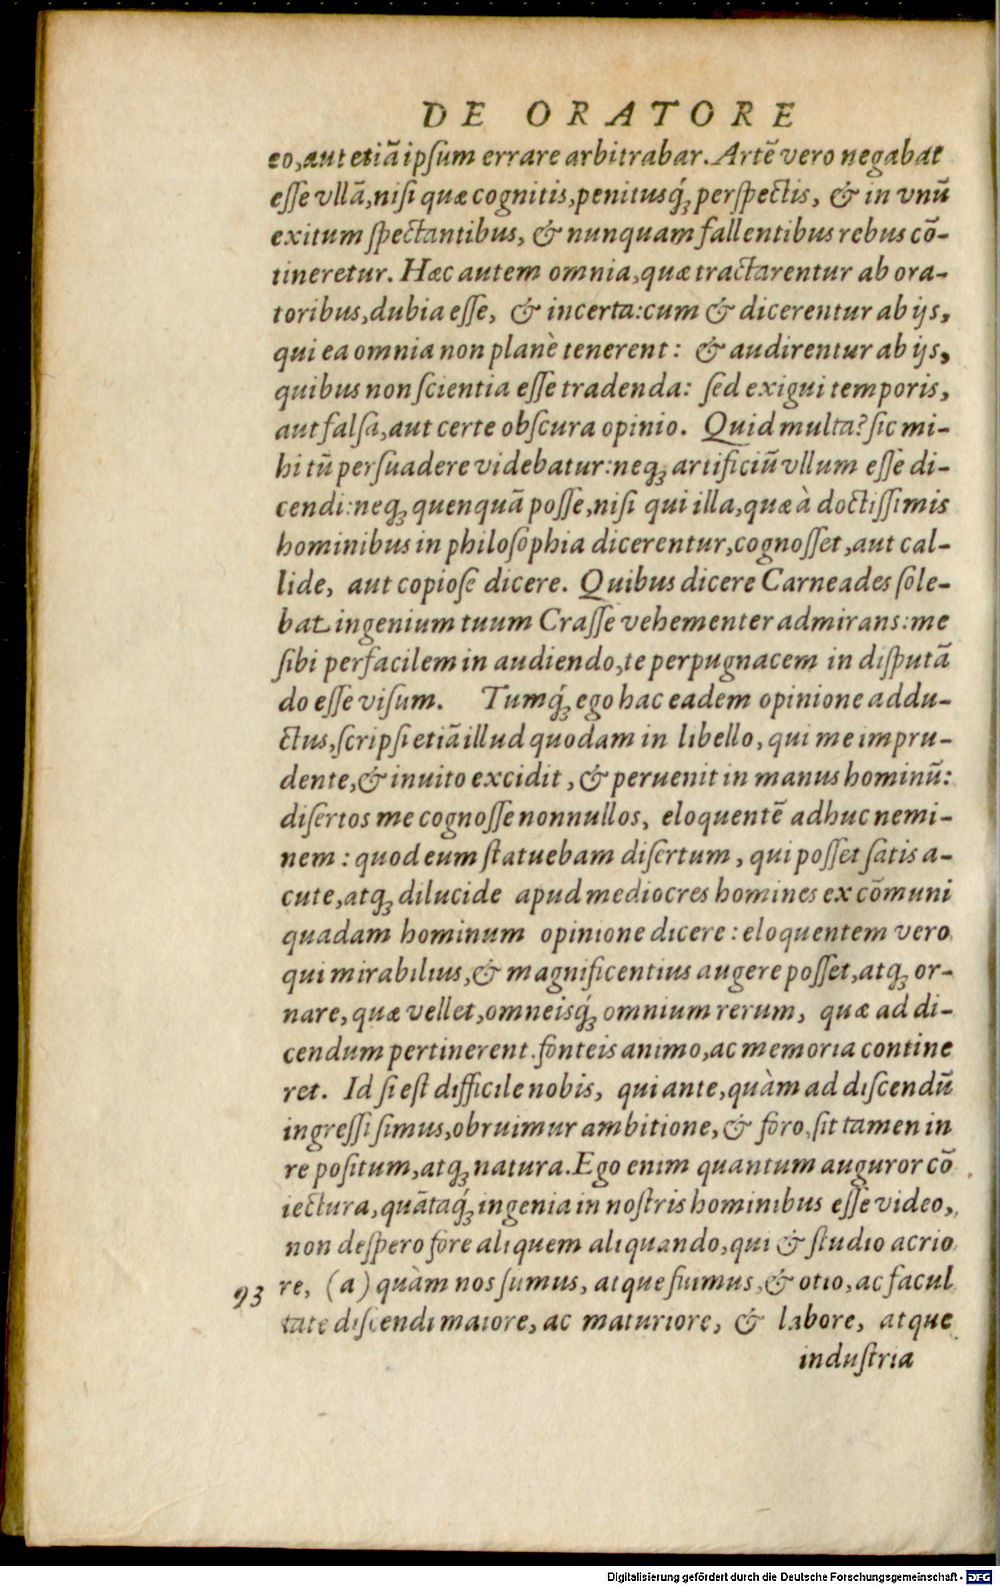 DE ORATORE
eo, aut etiã ipſum errare arbitrabar. Artẽ vero negabat
eſſe vllã, niſi quæ cognitis, penitusq́; perſpectis, & in vnũ
exitum ſpectantibus, & nunquam fallentibus rebus cõ-
tineretur. Hæc autem omnia, quæ tractarentur ab ora-
toribus, dubia eſſe, & incerta: cum & dicerentur ab ijs,
qui ea omnia non planè tenerent: & audirentur ab ijs,
quibus non ſcientia eſſe tradenda: ſed exigui temporis,
aut falſa, aut certe obſcura opinio. Quid multa? ſic mi-
hi tũ perſuadere videbatur: neq; artificiũ vllum eſſe di-
cendi: neq; quenquã poſſe, niſi qui illa, quæ à doctiſſimis
hominibus in philoſophia dicerentur, cognoſſet, aut cal-
lide, aut copioſe dicere. Quibus dicere Carneades ſole-
bat ingenium tuum Craſſe vehementer admirans: me
ſibi perfacilem in audiendo, te perpugnacem in diſputã
do eſſe viſum. Tumq́; ego hac eadem opinione addu-
ctus, ſcripſi etiã illud quodam in libello, qui me impru-
dente, & inuito excidit, & peruenit in manus hominũ:
diſertos me cognoſſe nonnullos, eloquentẽ adhuc nemi-
nem: quod eum ſtatuebam diſertum, qui poſſet ſatis a-
cute, atq; dilucide apud mediocres homines ex cõmuni
quadam hominum opinione dicere: eloquentem vero
qui mirabilius, & magnificentius augere poſſet, atq; or-
nare, quæ vellet, omneisq́; omnium rerum, quæ ad di-
cendum pertinerent. fonteis animo, ac memoria contine
ret. Id ſi eſt difficile nobis, qui ante, quàm ad diſcendũ
ingreſſi ſimus, obruimur ambitione, & foro, ſit tamen in
re poſitum, atq; natura. Ego enim quantum auguror cõ
iectura, quãtaq́; ingenia in noſtris hominibus eſſe video,
non deſpero fore aliquem aliquando, qui & ſtudio acrio
93 re, (a) quàm nos ſumus, atque fuimus, & otio, ac facul
tate diſcendi maiore, ac maturiore, & labore, atque
induſtria
Digitalisierung gefördert durch die Deutsche Forschungsgemeinschaft - DFG